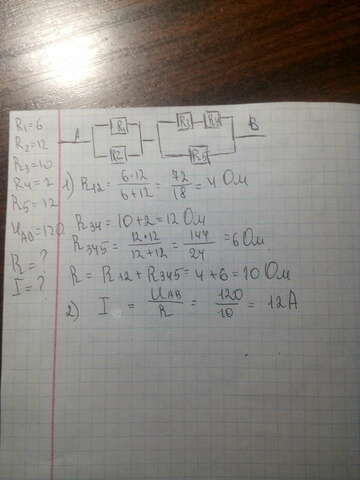 R1=6
R2=12
R3=10
R4=2
R5=12
UAB=120
R=?
I=?
A R1 R2 R3 R4 R5 B
1) R12 = 6·12/6+12 = 72/18 = 4 Ом
R34 = 10+2 = 12 Ом
R345 = 12·12/12+12 = 144/24 = 6 Ом
R = R12 + R345 = 4 + 6 = 10 Ом
2) I = UAB/R = 120/10 = 12 А